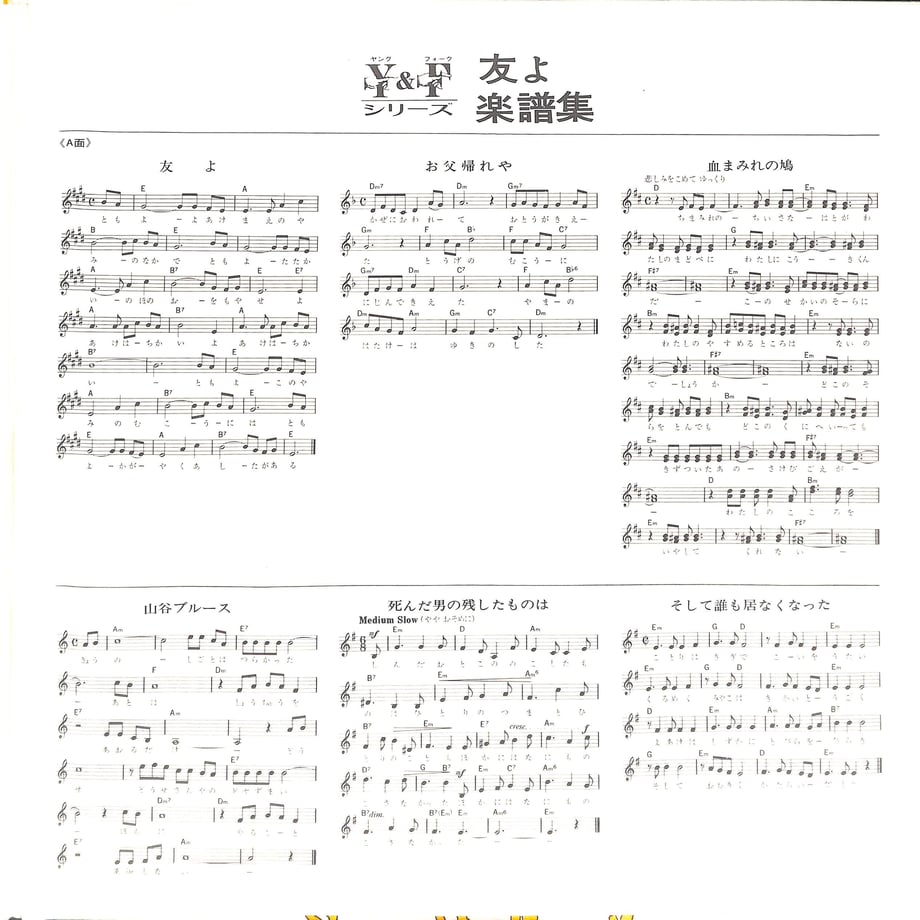 ヤング フォーク
Y&F
シリーズ
友よ
楽譜集
《A面》
友よ
E A
ともよーよあけまえのや
B E
みーのなかでともよーたたか
A B7 E
いーのほのおーをもやせよ
A B7 E A
あけはーちかいよあけはーちか
B7 E
いーともよーこのや
A B7
みのむこーうにはとも
E A E B7 E
よーかがーやくあしたがある
お父帰れや
Dm7 Dm Gm7
かぜにおわれーておとうがきえー
Gm F B♭ F
たとうげのむこうに
Gm7 Dm C7 F B♭6
にじんできえたやまーの
Dm Am Gm F C7 Dm
はたけーはゆきのした
血まみれの鳩
悲しみをこめて ゆっくり
D Em
ちまみれのーちいさなーはとがわ
G D
たしのまどべにわたしにこうーーきくん
F♯7 Em
だーこのせかいのそーらに
Bm Em
わたしのやすめるところはないの
F♯7 Em
でーしょうかーどこのそ
Bm
らをとんでもどこのくにへいーても
Em F♯7
きずついたあのーさけびごえがー
D Bm
ーわたしのこころを
Em F♯7
いやしてくれないー
山谷ブルース
Am E7
きょうのーしごとはつらかった
F Dm
ーあとはしょうちゅうを
Am
あおるだけーどう
E7
せ
Dm7 Dm
E7 Am
死んだ男の残したものは
Medium Slow (ややおそめに)
Em D Am Em
しんだおとこののこしたも
B7 Em Am6
のはひとりのつまとひ
B7 Em Em7 cresc. Am
とりのこどもほかにはなにも
D7 G B7 Em C7 Am6
のこさなかったほかにはなにもの
B7dim. B7(Em) Em Am Em
こさなかったー
そして誰も居なくなった
Em G D Em
ことりはきぎでこーいをうたい
Em G D
くるめくみやこはかいとーく
D Em G D Em
よあけはしずかにとびらをーたたき
G Em D Em
そして